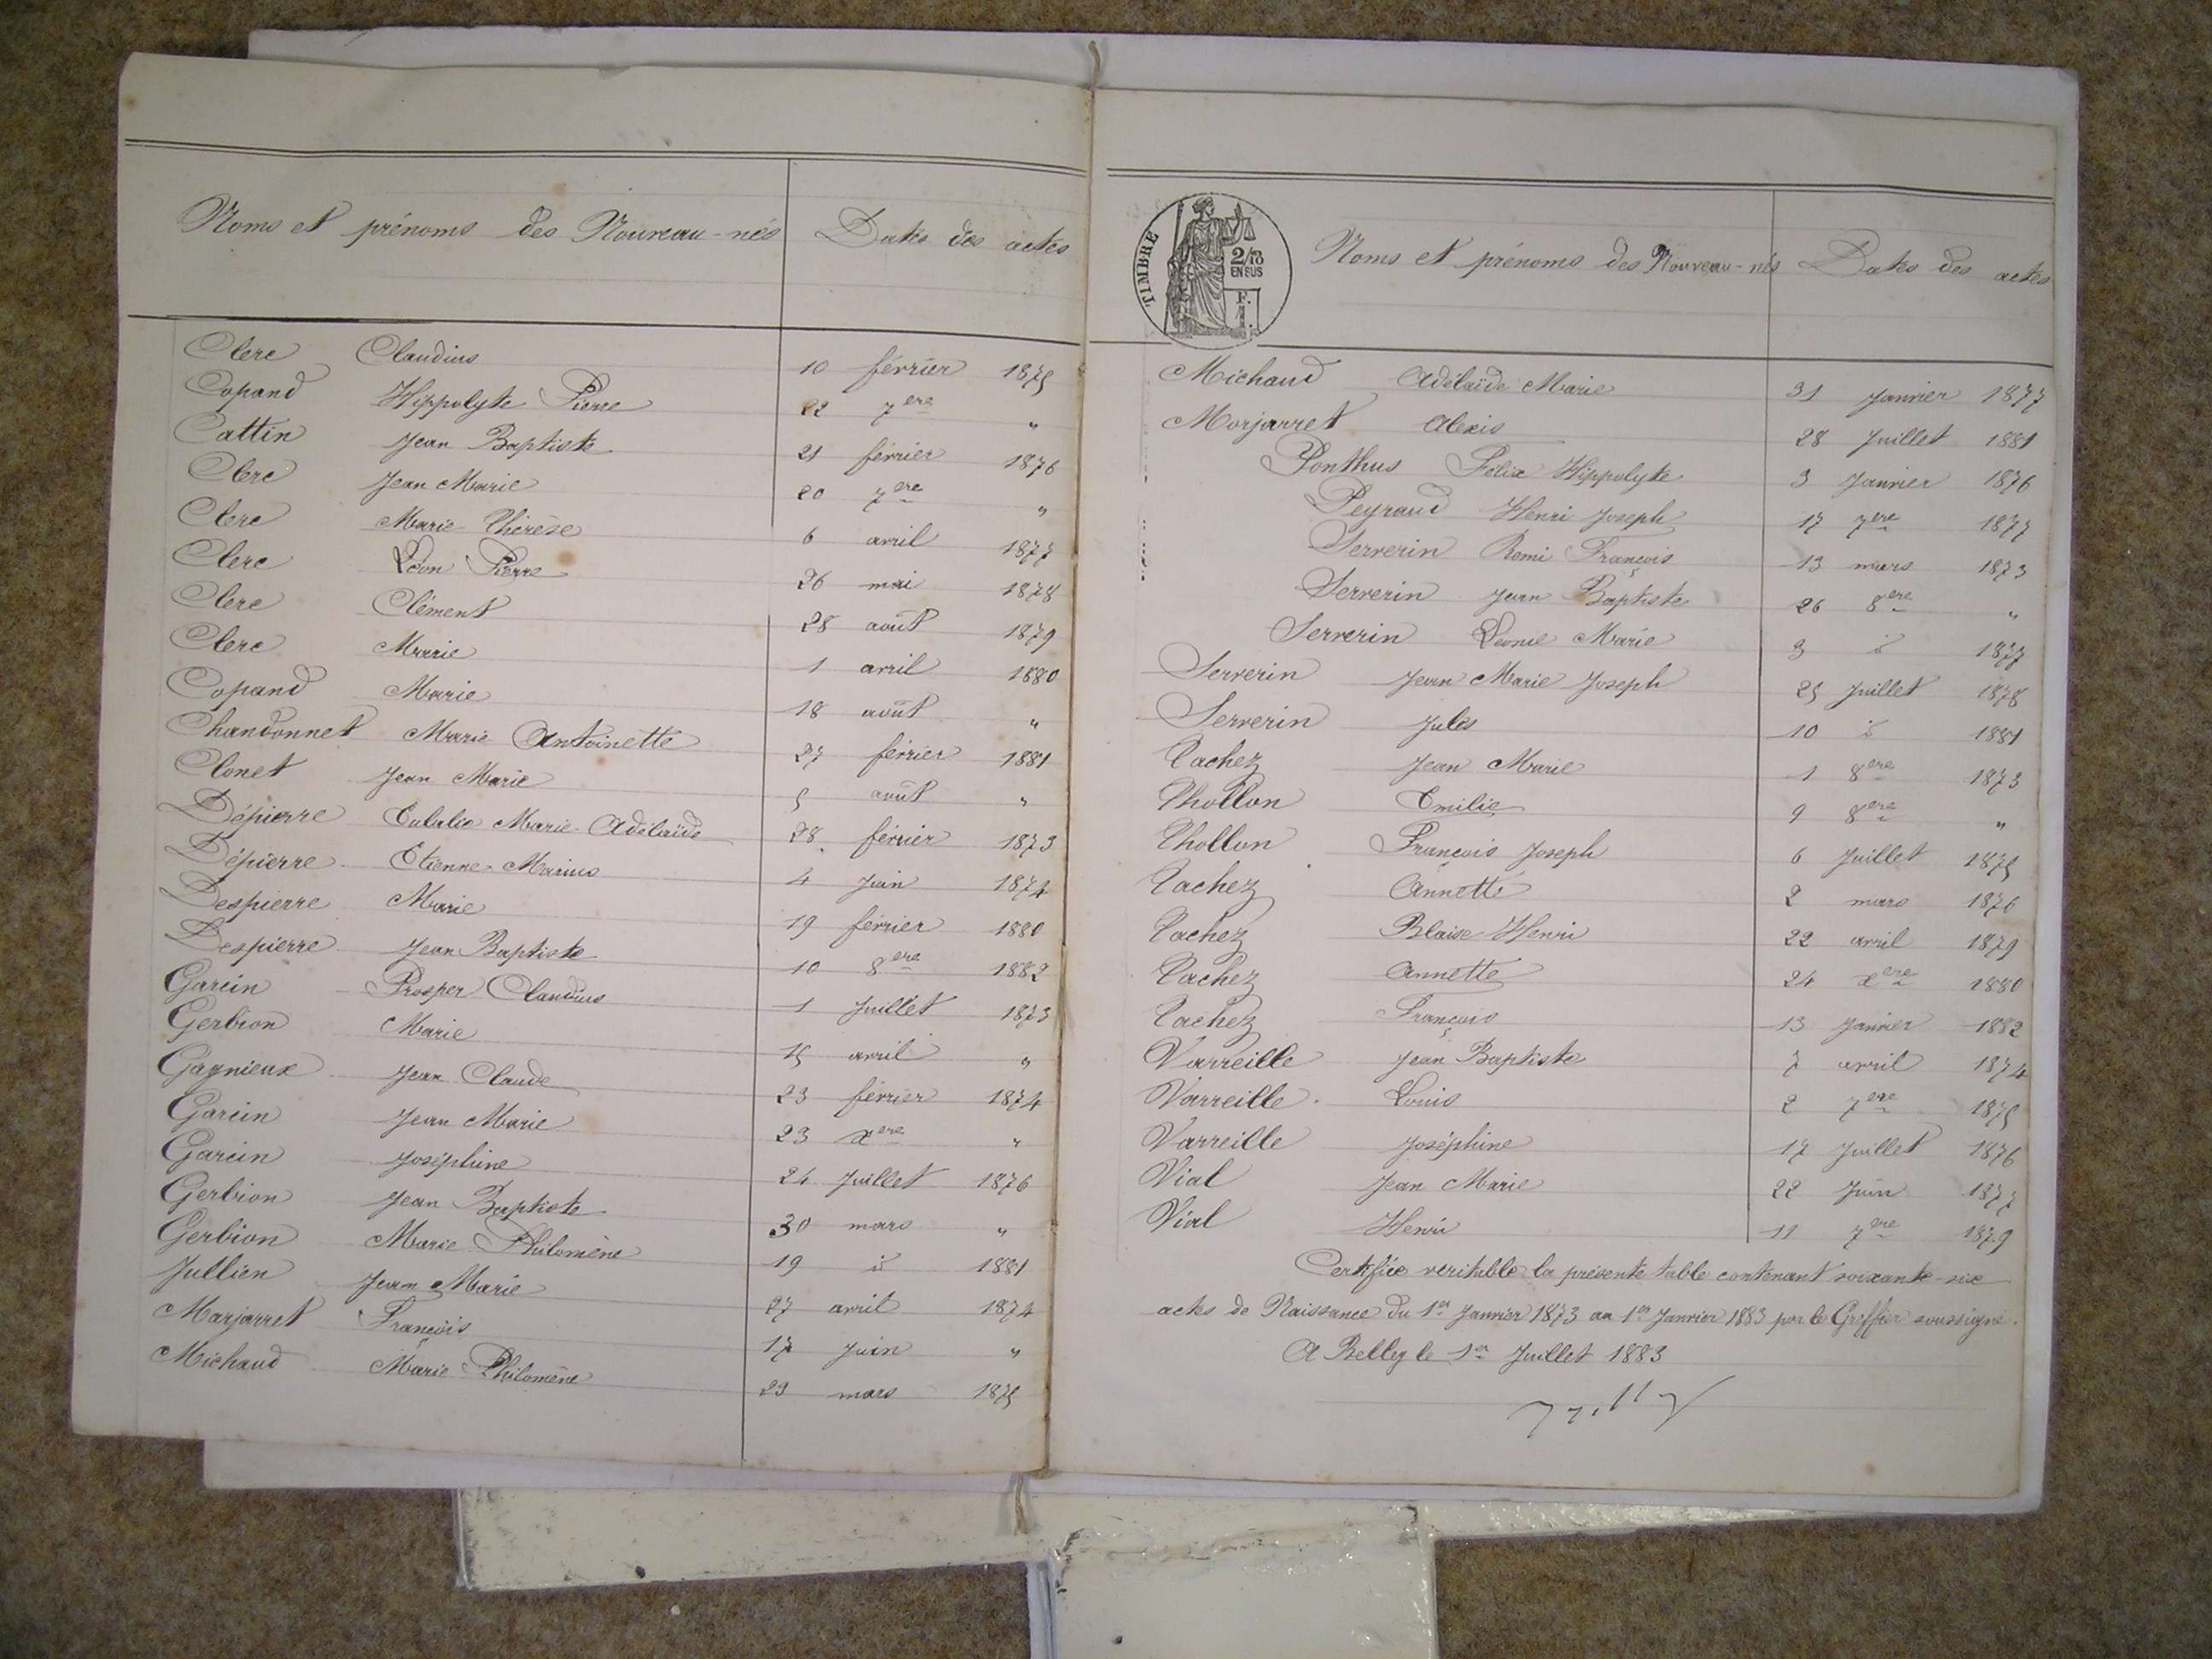 Noms et prénoms des Nouveau-nés Dates des actes
Clerc Claudius 10 février 1875
Copand Hippolyte Pierre 22 7ere "
Cattin Jean Baptiste 21 février 1876
Clerc Jean Marie 20 7ere "
Clerc Marie-Thérèse 6 avril 1877
Clerc Léon Pierre 26 mai 1878
Clerc Clément 28 août 1879
Clerc Marie 1 avril 1880
Copand Marie 18 août "
Chandonnet Marie Antoinette 27 février 1881
Clonet Jean Marie 5 août "
Dépierre Eulalie Marie-Adélaïde 28 février 1873
Dépierre Etienne-Marius 4 Juin 1874
Despierre Marie 19 février 1880
Despierre Jean Baptiste 10 8ere 1882
Garcin Prosper Claudius 1 Juillet 1873
Gerbion Marie 15 avril "
Gagnieux Jean Claude 23 février 1874
Garcin Jean Marie 23 xere "
Garcin Joséphine 24 Juillet 1876
Gerbion Jean Baptiste 30 mars "
Gerbion Marie Philomène 19 d 1881
Jullien Jean Marie 27 avril 1874
Marjarret François 17 Juin "
Michaud Marie-Philomène 29 mars 1875
TIMBRE
2/10
EN SUS
F.
1.
Noms et prénoms des Nouveau-nés Dates des actes
Michaud Adélaïde Marie 31 Janvier 1877
Morjarret Alexis 28 Juillet 1881
Ponthus Félix Hippolyte 3 Janvier 1876
Peyraud Henri Joseph 17 7ere 1877
Serverin Remi François 13 mars 1873
Serverin Jean Baptiste 26 8ere "
Serverin Léonie Marie 3 d 1877
Serverin Jean Marie Joseph 25 Juillet 1878
Serverin Jules 10 d 1881
Tachez Jean Marie 1 8ere 1873
Thollon Emilie 9 8ere "
Thollon François Joseph 6 Juillet 1875
Tachez Annette 2 mars 1876
Tachez Blaise-Henri 22 avril 1879
Tachez Annette 24 xere 1880
Tachez François 13 Janvier 1882
Varreille Jean Baptiste 7 avril 1874
Varreille Louis 2 7ere 1875
Varreille Joséphine 17 Juillet 1876
Vial Jean Marie 22 Juin 1877
Vial Henri 11 7ere 1879
Certifiée veritable la présente table contenant soixante-six
actes de Naissance du 1er Janvier 1873 au 1er Janvier 1883 par le Greffier soussigné.
A Belley le 1er Juillet 1883